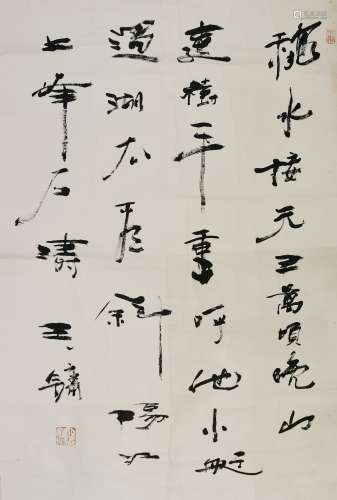 秋水接天三萬頃晚山
連樹一千重呼他小艇
過湖去卧看斜陽江
上峰石濤 王鏞